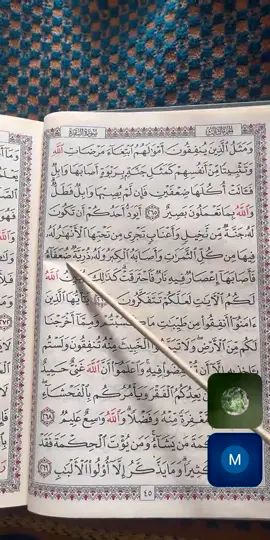 الجزء الثالث سورة البقرة
وَمَثَلُ ٱلَّذِينَ يُنفِقُونَ أَمْوَٰلَهُمُ ٱبْتِغَآءَ مَرْضَاتِ ٱللَّهِ
وَتَثْبِيتًا مِّنْ أَنفُسِهِمْ كَمَثَلِ جَنَّةٍۭ بِرَبْوَةٍ أَصَابَهَا وَابِلٌ
فَـَٔاتَتْ أُكُلَهَا ضِعْفَيْنِ فَإِن لَّمْ يُصِبْهَا وَابِلٌ فَطَلٌّ
وَٱللَّهُ بِمَا تَعْمَلُونَ بَصِيرٌ ٢٦٥ أَيَوَدُّ أَحَدُكُمْ أَن تَكُونَ
لَهُۥ جَنَّةٌ مِّن نَّخِيلٍ وَأَعْنَابٍ تَجْرِى مِن تَحْتِهَا ٱلْأَنْهَٰرُ لَهُۥ
فِيهَا مِن كُلِّ ٱلثَّمَرَٰتِ وَأَصَابَهُ ٱلْكِبَرُ وَلَهُۥ ذُرِّيَّةٌ ضُعَفَآءُ
فَأَصَابَهَآ إِعْصَارٌ فِيهِ نَارٌ فَٱحْتَرَقَتْ كَذَٰلِكَ ٱللَّهُ
لَكُمُ ٱلْـَٔايَٰتِ لَعَلَّكُمْ تَتَفَكَّرُونَ يَٰٓأَيُّهَا ٱلَّذِينَ
ءَامَنُوٓا۟ أَنفِقُوا۟ مِن طَيِّبَٰتِ مَا كَسَبْتُمْ وَمِمَّآ أَخْرَجْنَا
لَكُم مِّنَ ٱلْأَرْضِ وَلَا ٱلْخَبِيثَ مِنْهُ تُنفِقُونَ وَلَسْتُم
إِلَّآ أَن تُغْمِضُوا۟ فِيهِ وَٱعْلَمُوٓا۟ أَنَّ ٱللَّهَ غَنِىٌّ حَمِيدٌ
يَعِدُكُمُ ٱلْفَقْرَ وَيَأْمُرُكُم بِٱلْفَحْشَآءِ
مَّغْفِرَةً مِّنْهُ وَفَضْلًا وَٱللَّهُ وَٰسِعٌ عَلِيمٌ ٢٦٨
مَن يَشَآءُ وَمَن يُؤْتَ ٱلْحِكْمَةَ فَقَدْ
كَثِيرًا وَمَا يَذَّكَّرُ إِلَّآ أُو۟لُوا۟ ٱلْأَلْبَٰبِ ٢٦٩
٤٥
M